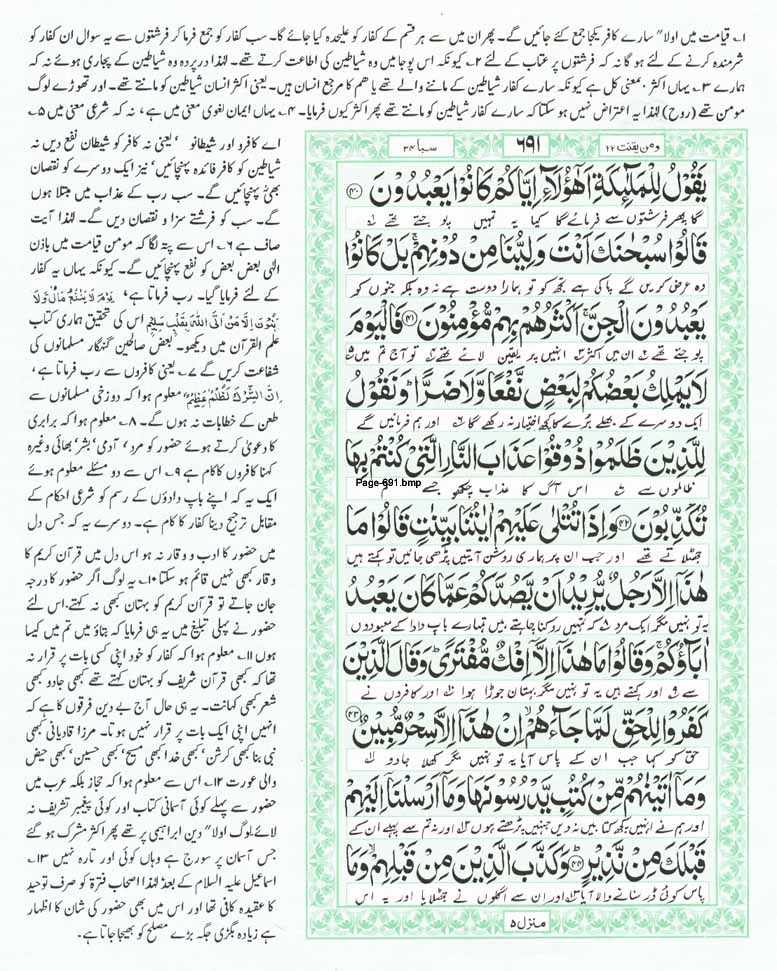 ۱۔ قیامت میں اولا" سارے کافر یکجا جمع کئے جائیں گے۔ پھر ان میں سے ہر قسم کے کفار کو علیحدہ کیا جائے گا۔ سب کفار کو جمع فرما کر فرشتوں سے یہ سوال ان کفار کو
شرمندہ کرنے کے لئے ہو گا نہ کہ فرشتوں پر عتاب کے لئے ۲۔ کیونکہ اس پوجا میں وہ شیاطین کی اطاعت کرتے تھے۔ لہٰذا در پردہ وہ شیاطین کے پجاری ہوئے نہ کہ
ہمارے ۳۔ یہاں اکثر بمعنی کل ہے کیونکہ سارے کفار شیاطین کے ماننے والے تھے یا ھم کا مرجع انسان ہیں۔ یعنی اکثر انسان شیاطین کو مانتے تھے۔ اور تھوڑے لوگ
مومن تھے (روح) لہٰذا یہ اعتراض نہیں ہو سکتا کہ سارے کفار شیاطین کو مانتے تھے پھر اکثر کیوں فرمایا۔ ۴۔ یہاں ایمان لغوی معنی میں ہے، نہ کہ شرعی معنی میں ۵۔
ومن یقنت ۲۲
۶۹۱
سبا ۳۴
یَقُوۡلُ لِلۡمَلٰٓئِکَۃِ اَهٰۤؤُلَآءِ اِیَّاکُمۡ کَانُوۡا یَعۡبُدُوۡنَ ﴿۴۰﴾
گا پھر فرشتوں سے فرمائے گا کیا یہ تمہیں پوجتے تھے
قَالُوۡا سُبۡحٰنَکَ اَنۡتَ وَلِیُّنَا مِنۡ دُوۡنِهِمۡ ۚ بَلۡ کَانُوۡا
وہ عرض کریں گے پاکی ہے تجھ کو تو ہمارا دوست ہے نہ وہ بلکہ جنوں کو
یَعۡبُدُوۡنَ الۡجِنَّ ۚ اَکۡثَرُهُمۡ بِهِمۡ مُّؤۡمِنُوۡنَ ﴿۴۱﴾ فَالۡیَوۡمَ
پوجتے تھے ان میں اکثر انہیں پر یقین لائے تھے تو آج تم میں
لَا یَمۡلِکُ بَعۡضُکُمۡ لِبَعۡضٍ نَّفۡعًا وَّلَا ضَرًّا ؕ وَ نَقُوۡلُ
ایک دوسرے کے بھلے برے کا کچھ اختیار نہ رکھے گا اور ہم فرمائیں گے
لِلَّذِیۡنَ ظَلَمُوۡا ذُوۡقُوۡا عَذَابَ النَّارِ الَّتِیۡ کُنۡتُمۡ بِهَا
ظالموں سے اس آگ کا عذاب چکھو جسے تم
Page-691.bmp
تُکَذِّبُوۡنَ ﴿۴۲﴾ وَ اِذَا تُتۡلٰی عَلَیۡهِمۡ اٰیٰتُنَا بَیِّنٰتٍ قَالُوۡا مَا
جھٹلاتے تھے اور جب ان پر ہماری روشن آیتیں پڑھی جائیں تو کہتے ہیں
هٰذَاۤ اِلَّا رَجُلٌ یُّرِیۡدُ اَنۡ یَّصُدَّکُمۡ عَمَّا کَانَ یَعۡبُدُ
یہ تو نہیں مگر ایک مرد کہ تمہیں روکنا چاہتے ہیں تمہارے باپ دادا کے معبودوں
اٰبَآؤُکُمۡ ۚ وَ قَالُوۡا مَا هٰذَاۤ اِلَّاۤ اِفۡکٌ مُّفۡتَرًی ؕ وَ قَالَ الَّذِیۡنَ
سے اور کہتے ہیں یہ تو نہیں مگر بہتان جوڑا ہوا اور کافروں نے
کَفَرُوۡا لِلۡحَقِّ لَمَّا جَآءَهُمۡ ۙ اِنۡ هٰذَاۤ اِلَّا سِحۡرٌ مُّبِیۡنٌ ﴿۴۳﴾
حق کو کہا جب ان کے پاس آیا یہ تو نہیں مگر کھلا جادو
وَ مَاۤ اٰتَیۡنٰهُمۡ مِّنۡ کُتُبٍ یَّدۡرُسُوۡنَهَا وَ مَاۤ اَرۡسَلۡنَاۤ اِلَیۡهِمۡ
اور ہم نے انہیں کچھ کتابیں نہ دیں جنہیں پڑھتے ہوں اور نہ تم سے پہلے ان کے
قَبۡلَکَ مِنۡ نَّذِیۡرٍ ﴿۴۴﴾ وَ کَذَّبَ الَّذِیۡنَ مِنۡ قَبۡلِهِمۡ ۙ وَ مَا
پاس کوئی ڈر سنانے والا آیا اور ان سے اگلوں نے جھٹلایا اور یہ اس
منزل ۵
اے کافرو اور شیطانو ' یعنی نہ کافر کو شیطان نفع دیں نہ
شیاطین کو کافر فائدہ پہنچائیں' نیز ایک دوسرے کو نقصان
بھی پہنچائیں گے۔ سب رب کے عذاب میں مبتلا ہوں
گے۔ سب کو فرشتے سزا و نقصان دیں گے۔ لہٰذا آیت
صاف ہے ۶۔ اس سے پتہ لگا کہ مومن قیامت میں باذن
الٰہی بعض بعض کو نفع پہنچائیں گے۔ کیونکہ یہاں یہ کفار
کے لئے فرمایا گیا۔ رب فرماتا ہے، یَوْمَ لَا یَنْفَعُ مَالٌ وَّلَا
بَنُوْنَ اِلَّا مَنْ اَتَی اللّٰہَ بِقَلْبٍ سَلِیْمٍ اس کی تحقیق ہماری کتاب
علم القرآن میں دیکھو۔ بعض صالحین گنہگار مسلمانوں کی
شفاعت کریں گے ۷۔ یعنی کافروں سے رب فرماتا ہے،
اِنَّ الشِّرْکَ لَظُلْمٌ عَظِیْمٌ معلوم ہوا کہ دوزخی مسلمانوں سے
طعن کے خطابات نہ ہوں گے۔ ۸۔ معلوم ہوا کہ برابری
کا دعویٰ کرتے ہوئے حضور کو مرد، آدمی' بشر' بھائی وغیرہ
کہنا کافروں کا کام ہے ۹۔ اس سے دو مسئلے معلوم ہوئے
ایک یہ کہ اپنے باپ دادوں کے رسم کو شرعی احکام کے
مقابل ترجیح دینا کفار کا کام ہے۔ دوسرے یہ کہ جس دل
میں حضور کا ادب و وقار نہ ہو اس دل میں قرآن کریم کا
وقار کبھی نہیں قائم ہو سکتا ۱۰۔ یہ لوگ اگر حضور کا درجہ
جان جاتے تو قرآن کریم کو بہتان کبھی نہ کہتے۔ اس لئے
حضور نے پہلی تبلیغ میں یہ ہی فرمایا کہ بتاؤ میں تم میں کیسا
ہوں ۱۱۔ معلوم ہوا کہ کفار کو خود اپنی کسی بات پر قرار نہ
تھا کہ کبھی قرآن شریف کو بہتان کہتے تھے کبھی جادو کبھی
شعر کبھی کہانت۔ یہ ہی حال آج بے دین فرقوں کا ہے کہ
انہیں اپنی ایک بات پر قرار نہیں ہوتا۔ مرزا قادیانی کبھی
نبی بنا' کبھی کرشن' کبھی خدا' کبھی مسیح' کبھی حسین' کبھی حیض
والی عورت ۱۲۔ اس سے معلوم ہوا کہ حجاز بلکہ عرب میں
حضور سے پہلے کوئی آسمانی کتاب اور کوئی پیغمبر تشریف نہ
لائے۔ لوگ اولا" دین ابراہیمی پر تھے پھر اکثر مشرک ہو گئے
جس آسمان پر سورج ہے وہاں کوئی اور تارہ نہیں ۱۳۔
اسماعیل علیہ السلام کے بعد' لہٰذا اصحاب فترۃ کو صرف توحید
کا عقیدہ کافی تھا اور اس میں بھی حضور کی شان کا اظہار
ہے زیادہ بگڑی جگہ بڑے مصلح کو بھیجا جاتا ہے۔